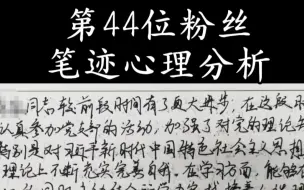 第44位粉丝
笔迹心理分析
同志较前段时间有了更大进步，在这段时
认真参加党支部的活动，加强了对党的理论知
特别是对习近平新时代中国特色社会主义思想
理论上不断充实完善自我。在学习方面，能够